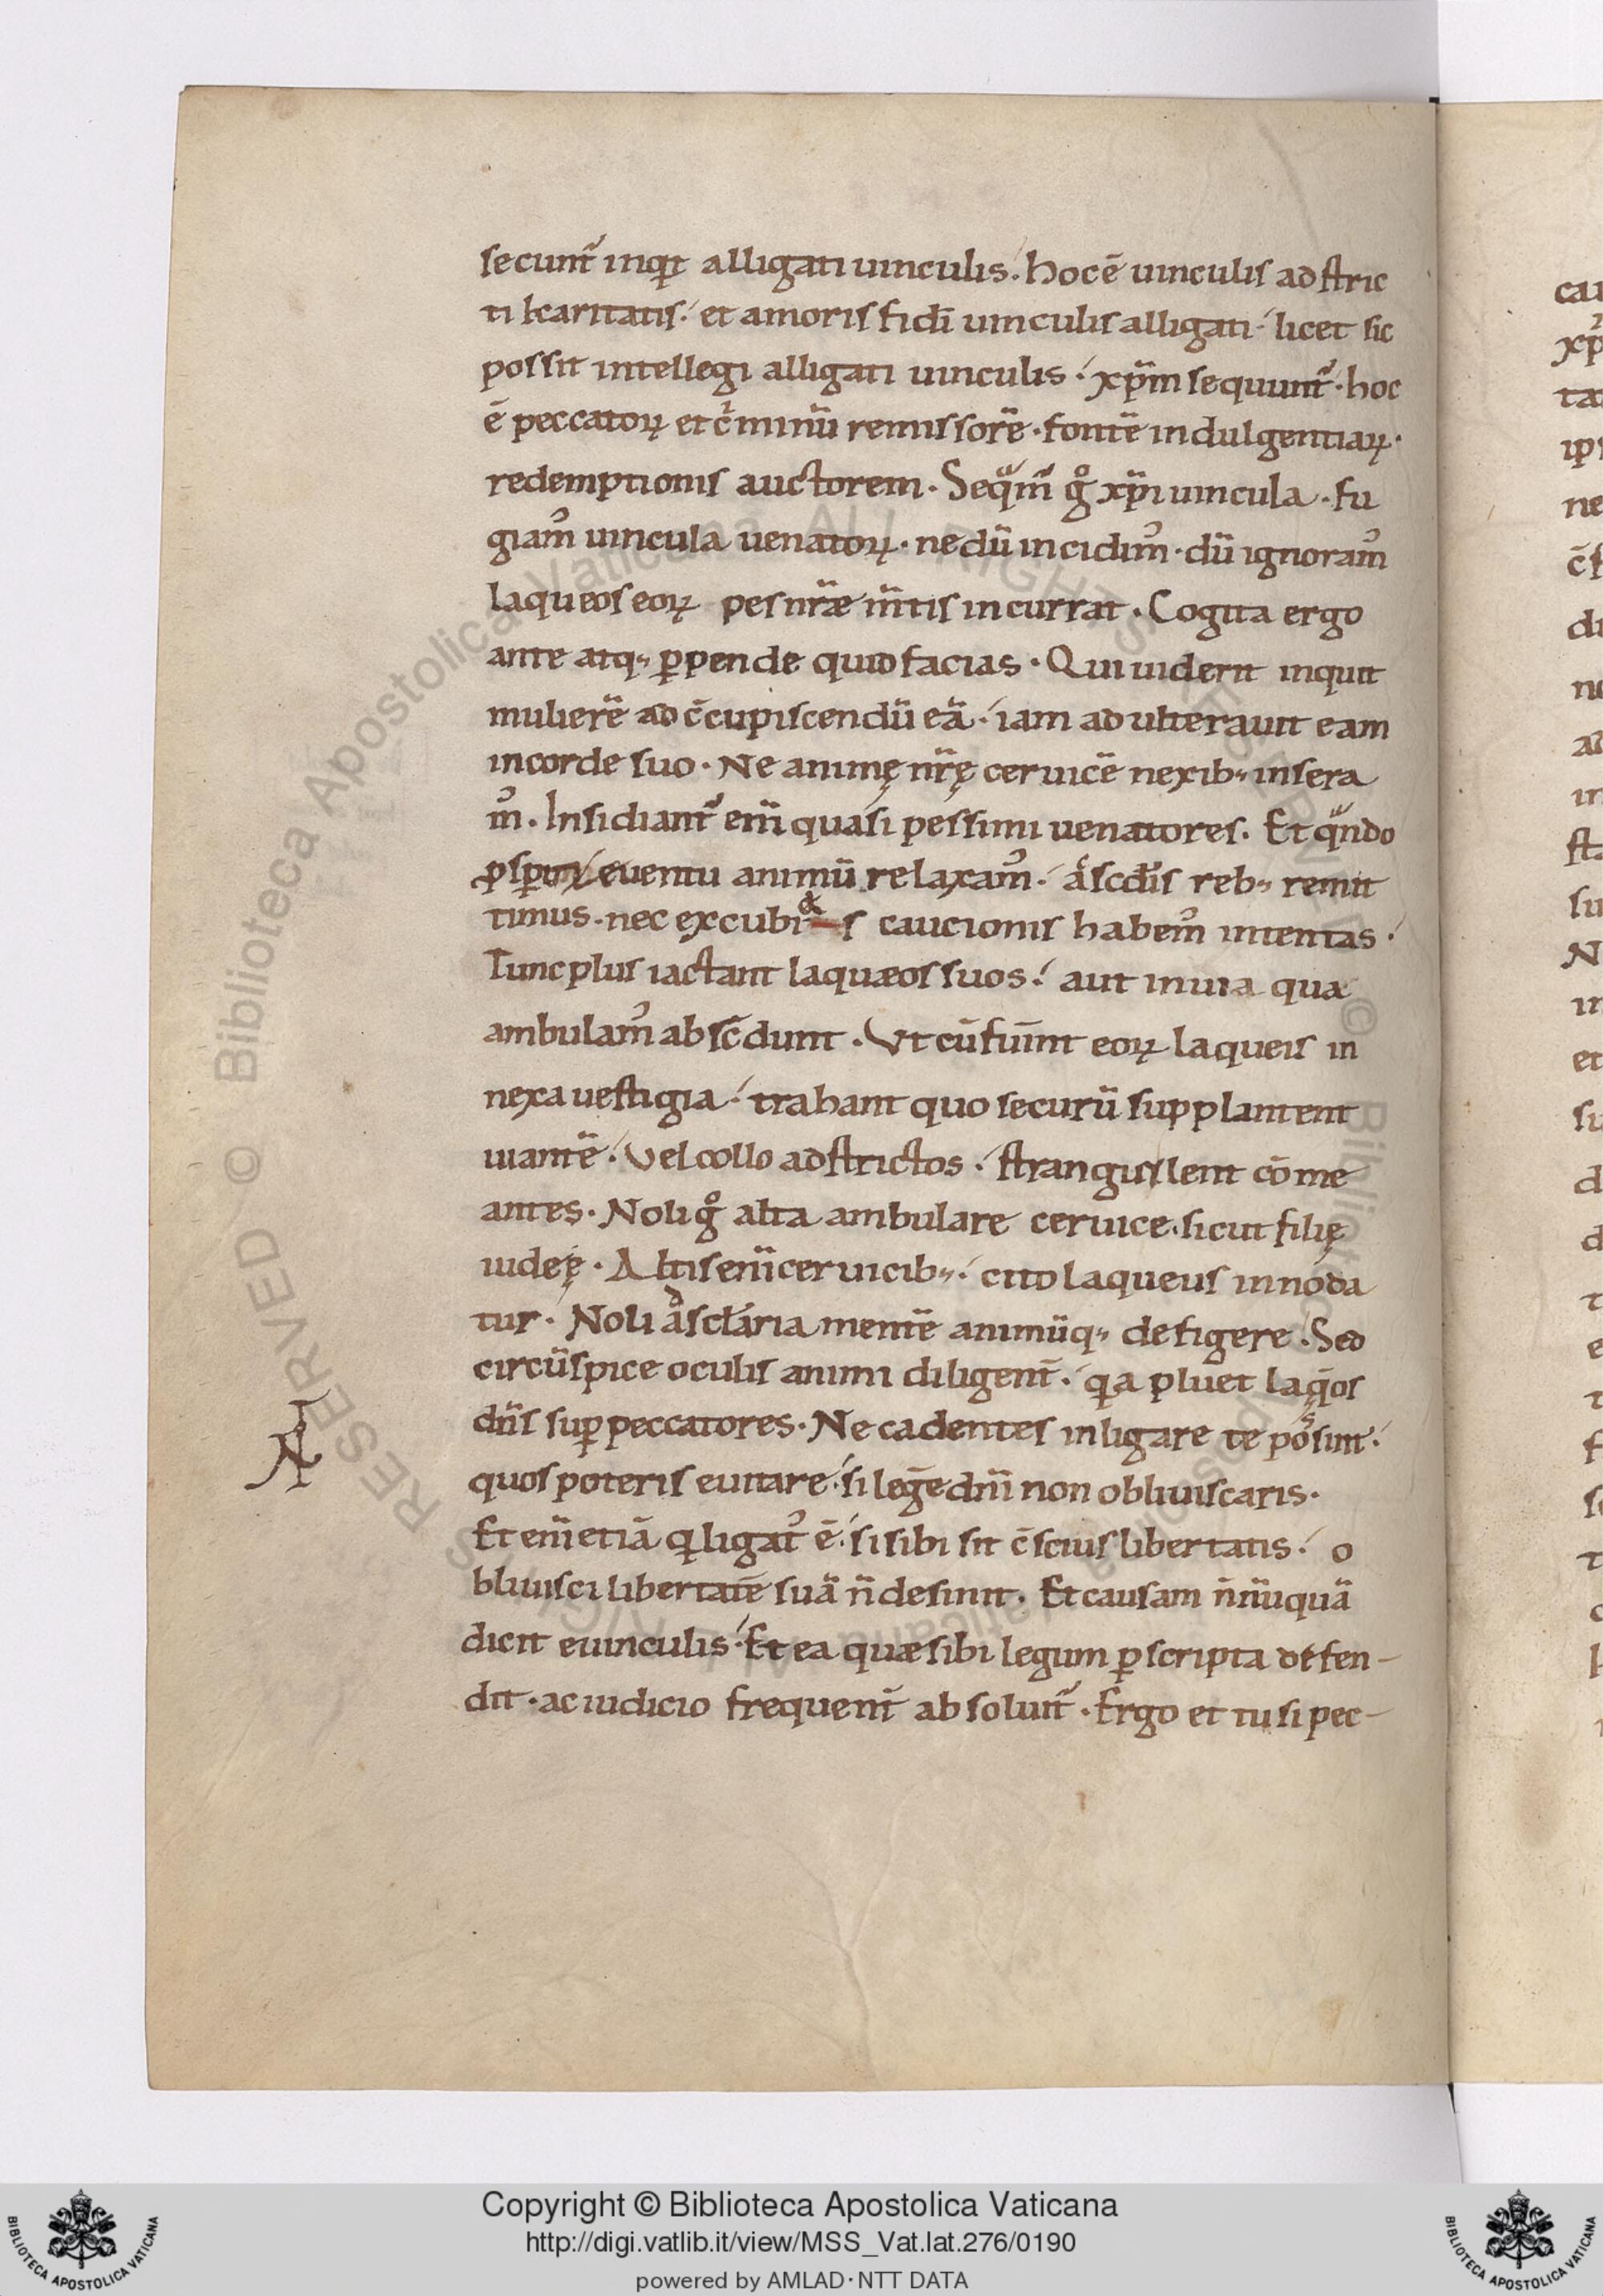 secunt᷑ inqͥt alligati uinculis. hoc ē uinculis adstric
ti ł caritatis. et amoris fidi uinculis alligati. licet sic
possit intellegi alligati uinculis. xp̄m sequunt᷑. hoc
ē peccatoꝝ et cͥminū remissorē. fontē indulgentiaꝝ.
redemptionis auctorem. Seqᵃm᷑ gͦ xp̄i uincula. fu
giamꝰ uincula uenatoꝝ. ne dū incidimꝰ. dū ignoramꝰ
laqueos eoꝝ pes nr̄æ m̄tis incurrat. Cogita ergo
ante atq; ꝑpende quid facias. Qui uiderit inquit
mulierē ad c̄cupiscendū eā. iam adulterauit eam
in corde suo. Ne animę nr̄ę ceruicē nexib; insera
mꝰ. Insidiant᷑ eni̅ quasi pessimi uenatores. Et qᵃndo
euentu animū relaxamꝰ. reb; remit
timus. nec excubi&s caucionis habemꝰ intentas.
Tunc plus iactant laquæos suos. aut in uia qua
ambulamꝰ absc̄dunt. Vt cū fui̅nt eoꝝ laqueis in
nexa uestigia. trahant quo securū supplantent
uiantē. Vel collo adstrictos. strangulent cōme
antes. Noli gͦ alta ambulare ceruice. sicut filię
iudeę. Altis eni̅ ceruicib;. cito laqueus innoda
tur. Noli mentē animūq; defigere. Sed
circūspice oculis animi diligent̄. qͥa pluet laq̄os
dn̄s suꝑ peccatores. Ne cadentes inligare te possint.
quos poteris euitare. si legē dn̄i non obliuiscaris.
Et eni̅ etiā qͥ ligatꝰ ē. si sibi sit c̄scius libertatis. o
bliuisci libertatē suā n̄ desinit. Et causam n̄nūquā
dicit e uinculis. Et ea quæ sibi legum p̱scripta defen-
dit. ac iudicio frequent̄ absoluit᷑. Ergo et tu si pec-
Copyright © Biblioteca Apostolica Vaticana
http://digi.vatlib.it/view/MSS_Vat.lat.276/0190
powered by AMLAD·NTT DATA